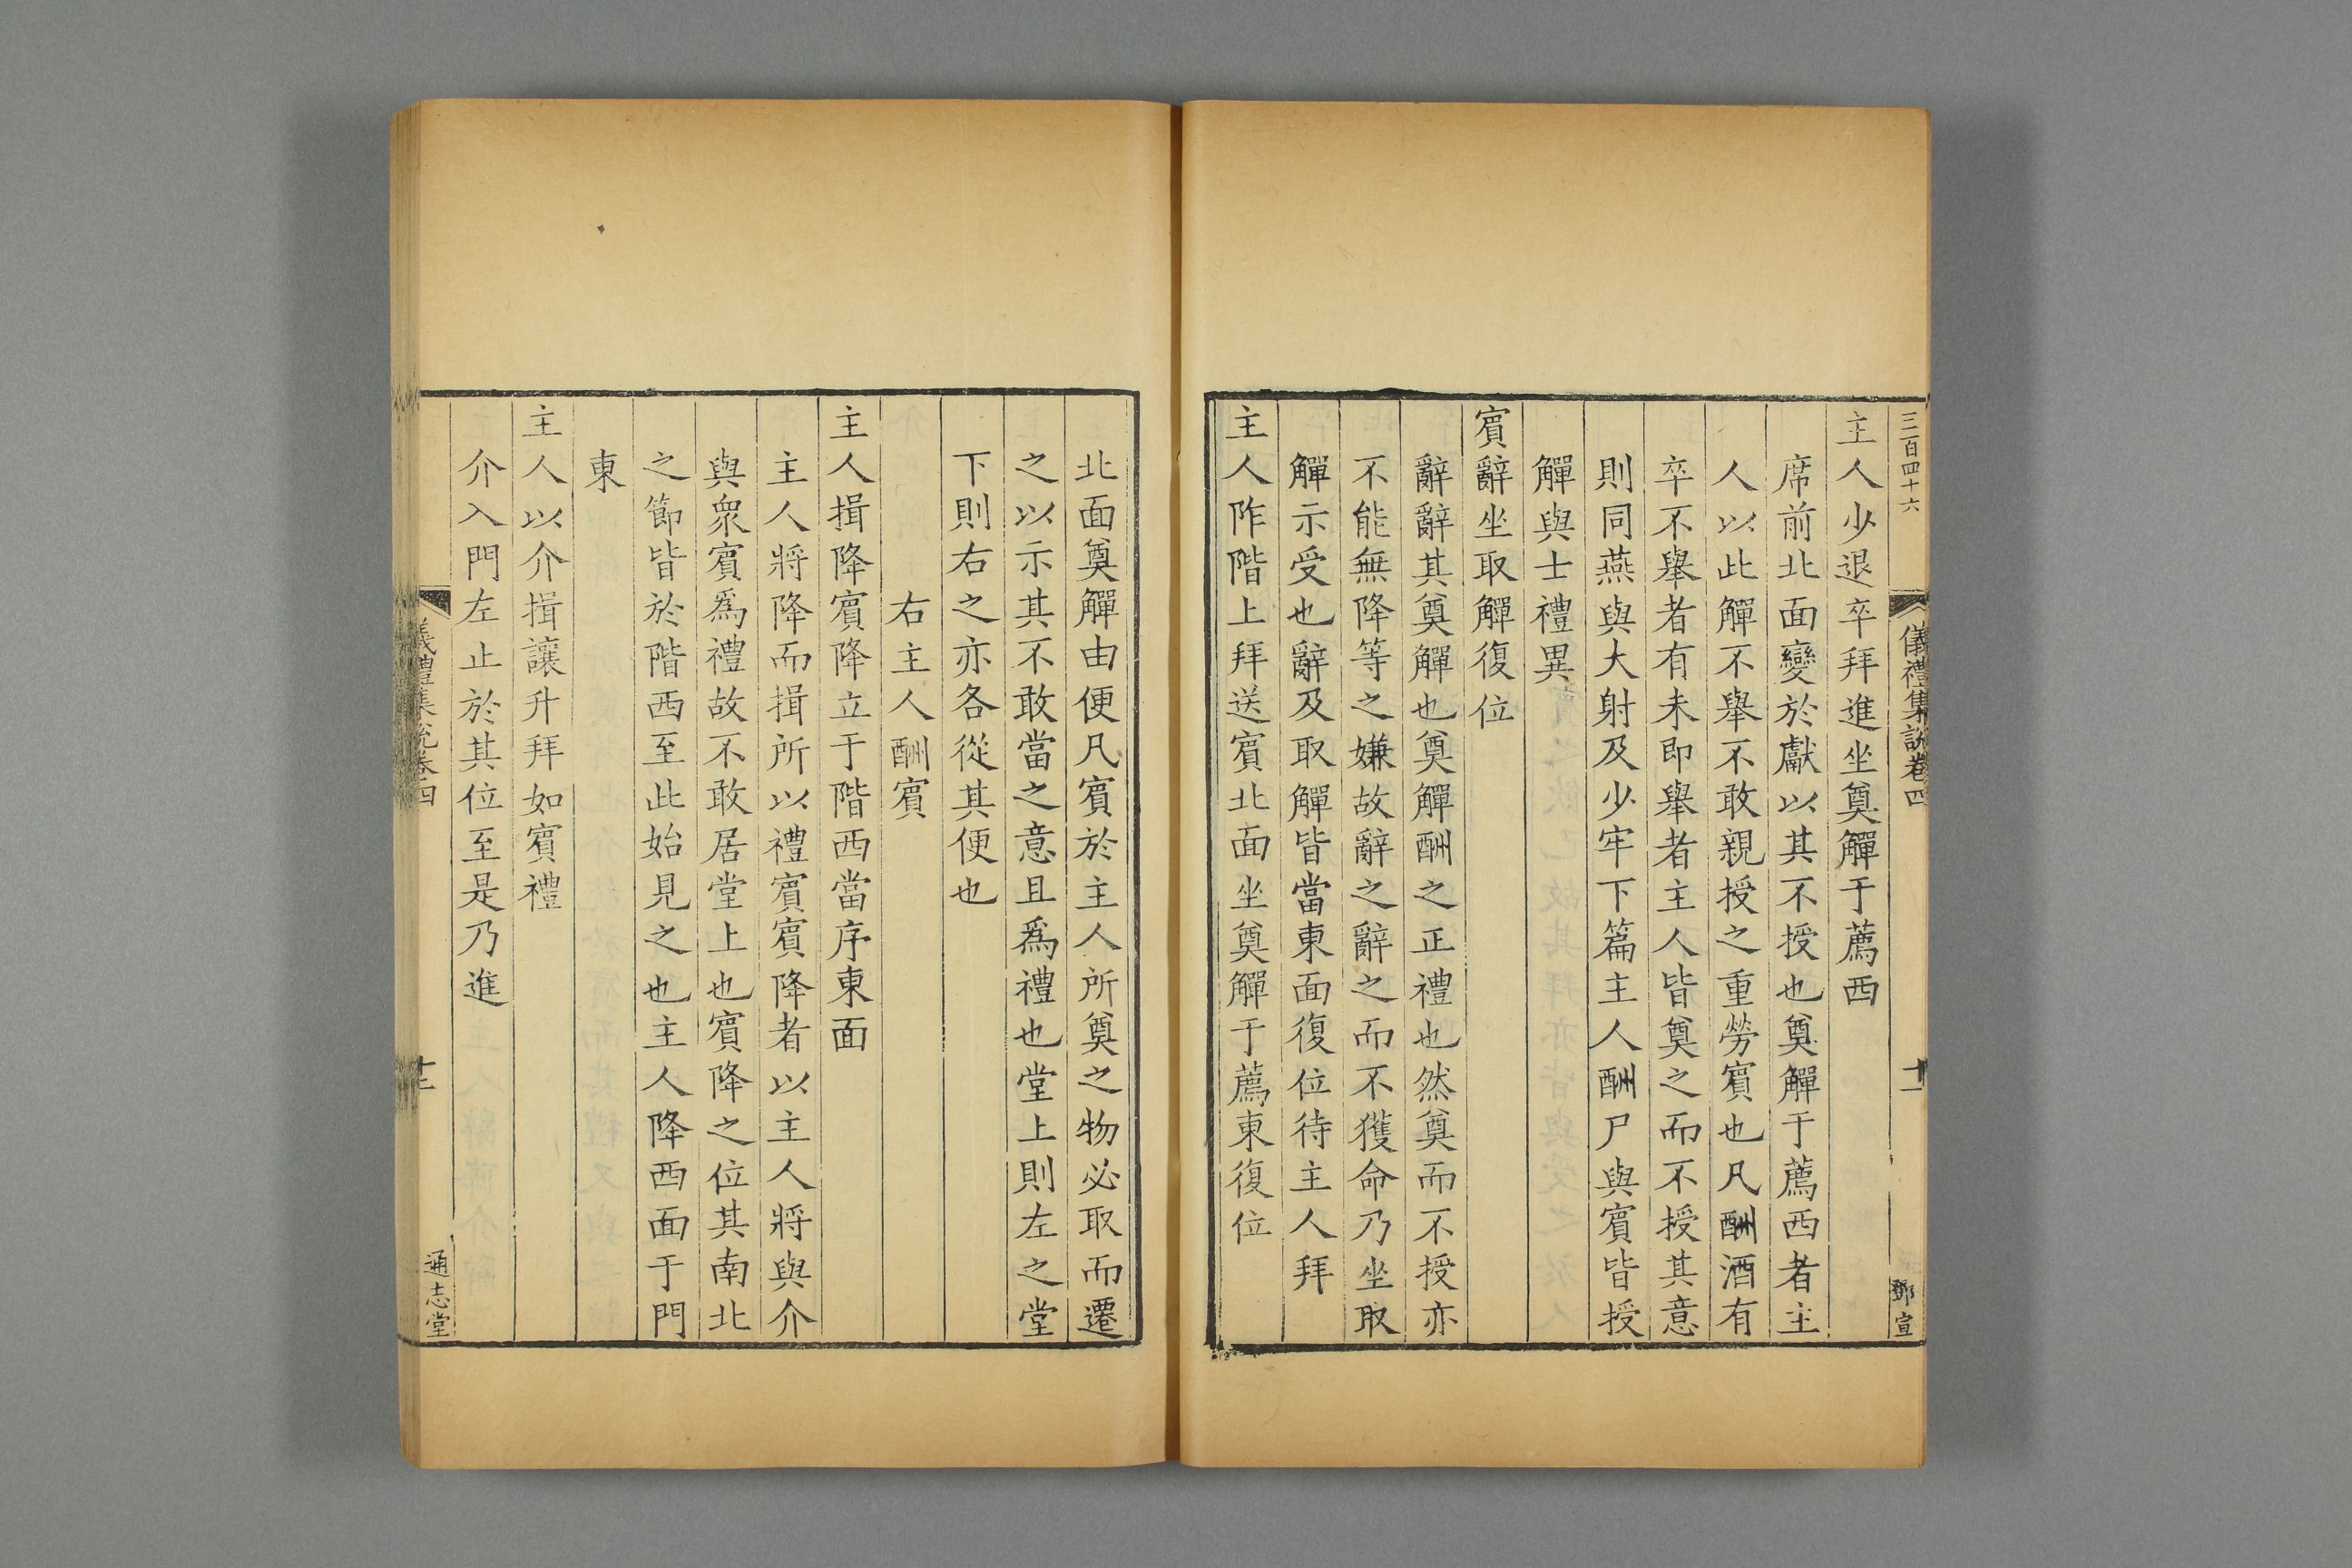 三百四十六
儀禮集說卷四
十一
鄧宣
主人少退卒拜進坐奠觶于薦西
席前北面變於獻以其不授也奠觶于薦西者主
人以此觶不舉不敢親授之重勞賓也凡酬酒有
卒不舉者有未即舉者主人皆奠之而不授其意
則同燕與大射及少牢下篇主人酬尸與賓皆授
觶與士禮異
賓辭坐取觶復位
辭辭其奠觶也奠觶酬之正禮也然奠而不授亦
不能無降等之嫌故辭之辭之而不獲命乃坐取
觶示受也辭及取觶皆當東面復位待主人拜
主人阼階上拜送賓北面坐奠觶于薦東復位
北面奠觶由便凡賓於主人所奠之物必取而遷
之以示其不敢當之意且為禮也堂上則左之堂
下則右之亦各從其便也
右主人酬賓
主人揖降賓降立于階西當序東面
主人將降而揖所以禮賓賓降者以主人將與介
與衆賓爲禮故不敢居堂上也賓降之位其南北
之節皆於階西至此始見之也主人降西面于門
東
主人以介揖讓升拜如賓禮
介入門左止於其位至是乃進
儀禮集說卷四
十二
通志堂